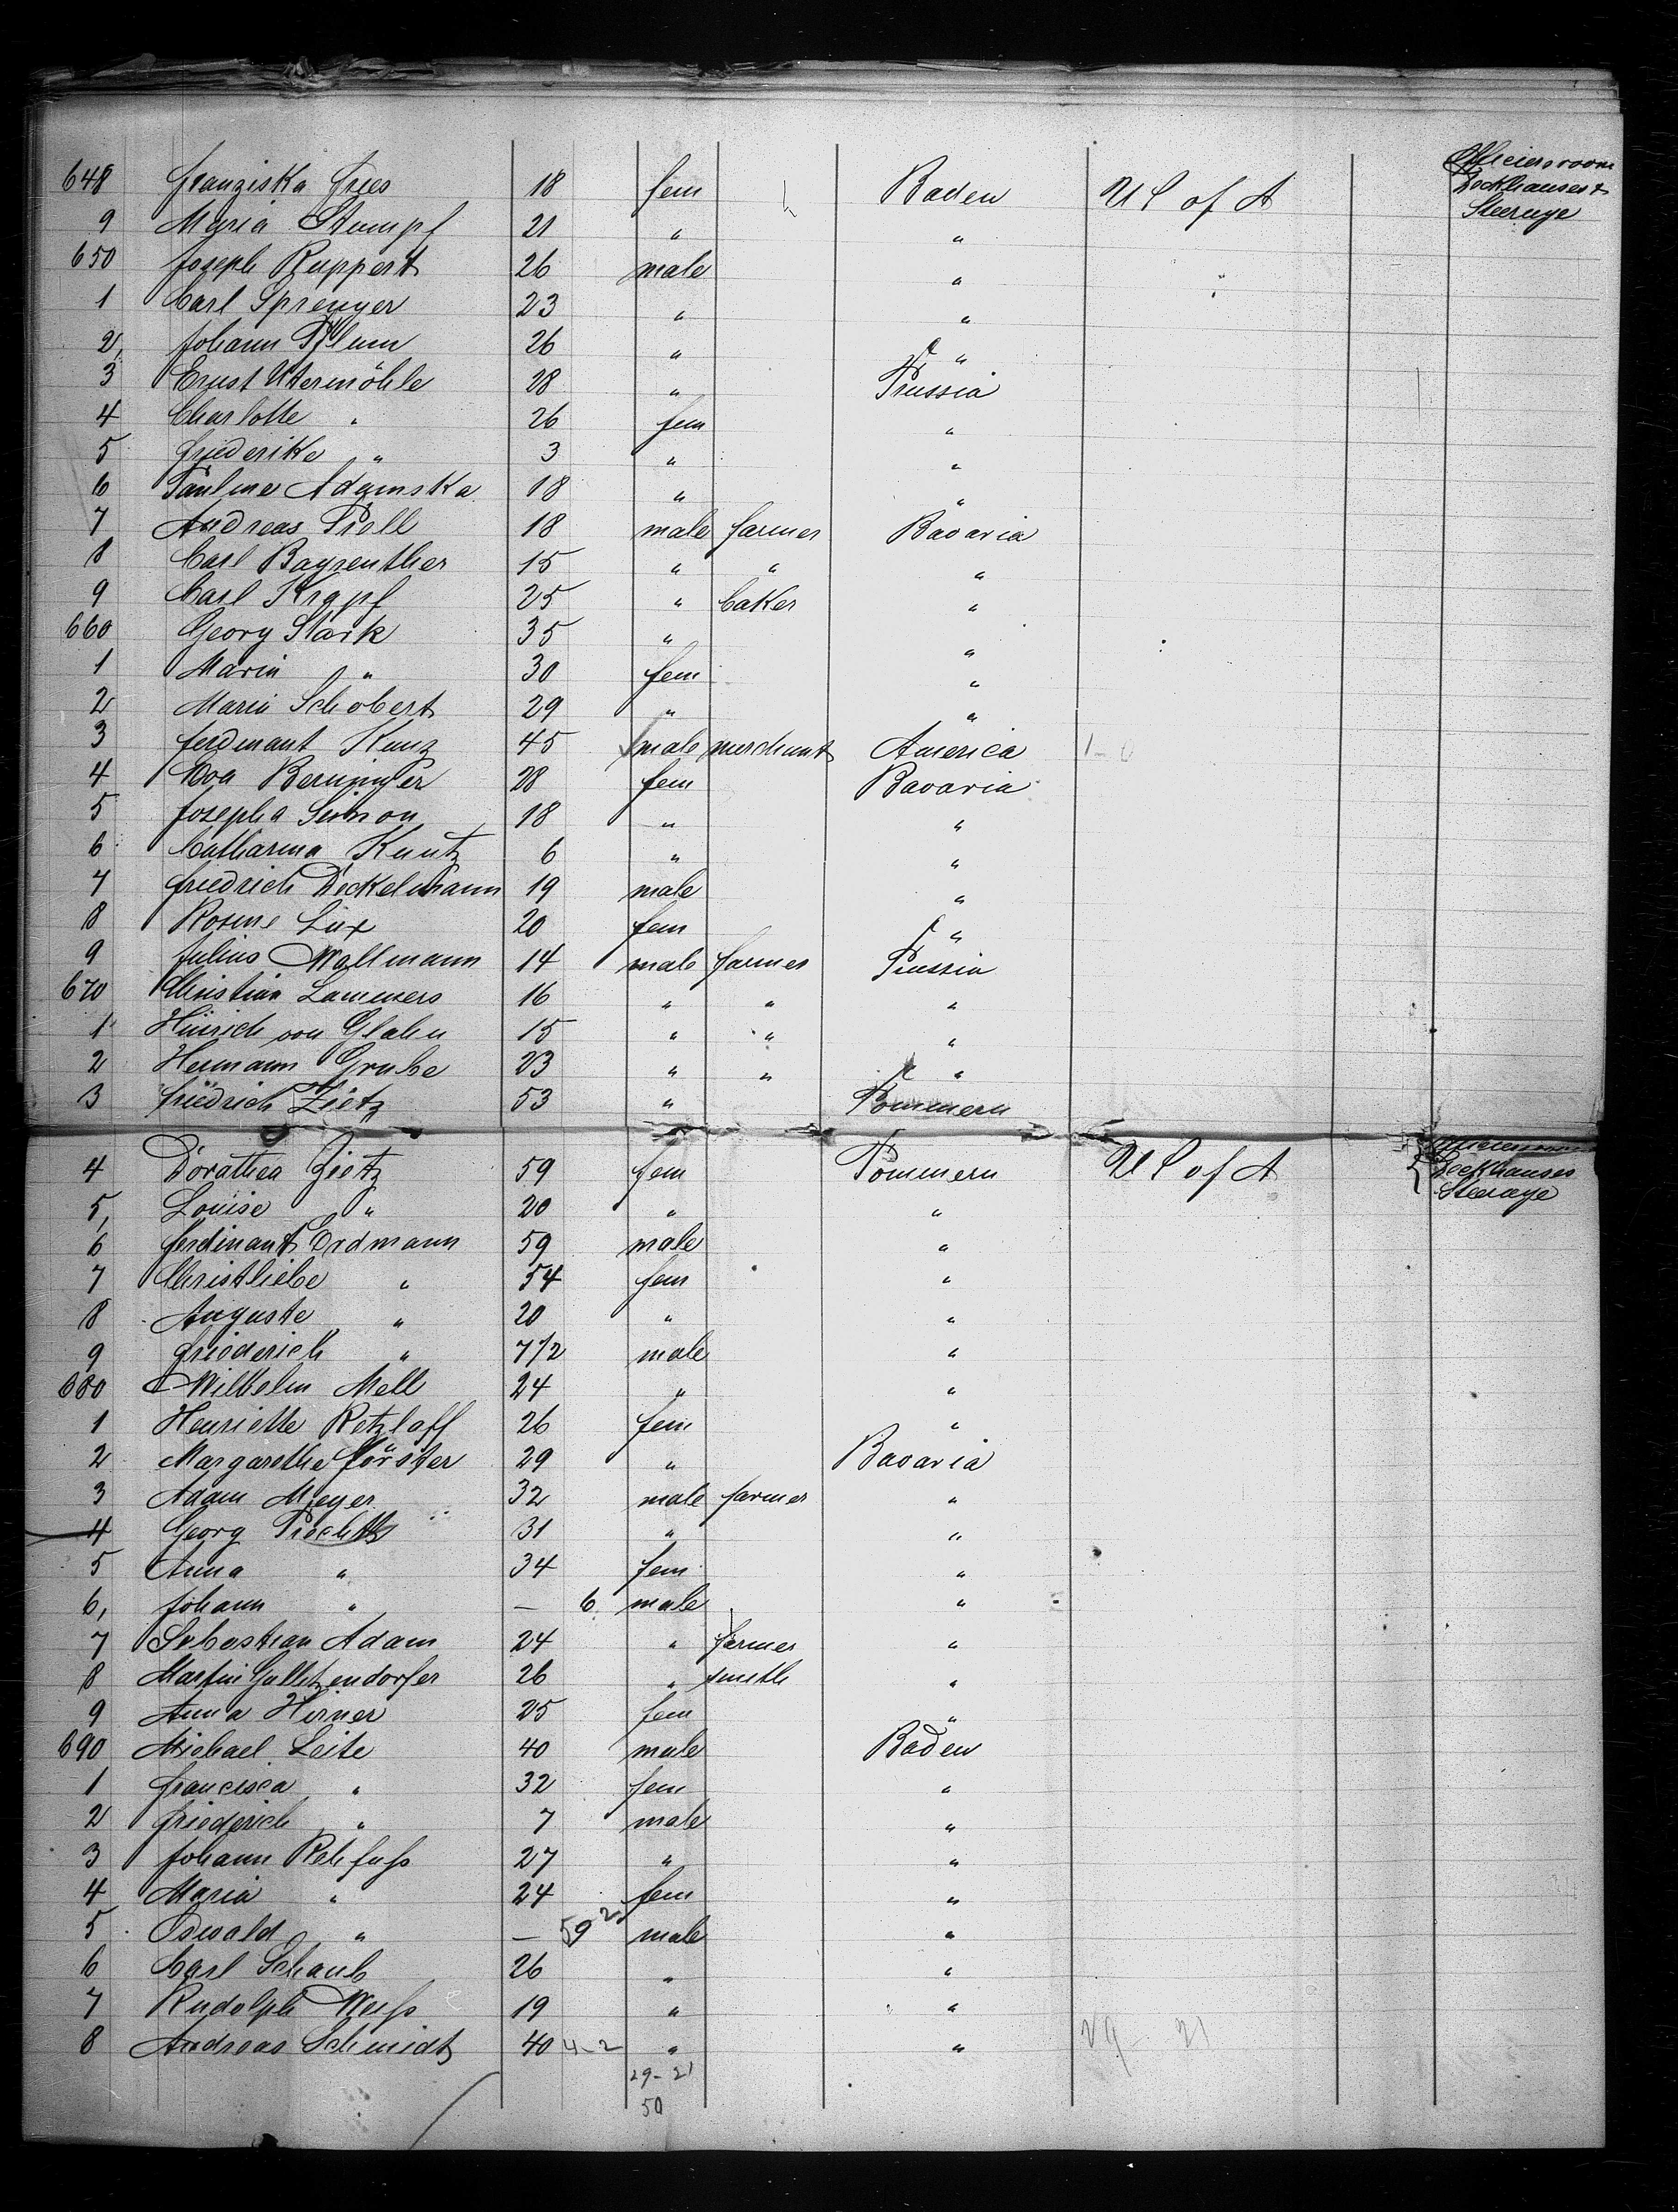 Officiers room
648 Franziska Fries 18 fem Baden U S of A Deckhauses &
9 Maria Stumpf 21 " " Steerage
650 Joseph Ruppert 26 male "
1 Carl Sprenger 23 " "
2 Johann Pflum 26 " "
3 Ernst Utermöhle 28 " Prussia
4 Charlotte " 26 fem "
5 Friederike " 3 " "
6 Pauline Adamska 18 " "
7 Andreas Prell 18 male farmer Bavaria
8 Carl Bayreuther 15 " " "
9 Carl Krapf 25 " baker "
660 Georg Stark 35 " "
1 Maria " 30 fem "
2 Maria Schobert 29 " "
3 Ferdinant Kunz 45 male merchant America
4 Eva Berninger 28 fem Bavaria
5 Josepha Simon 18 " "
6 Catharina Kuntz 6 " "
7 Friedrich Deckelmann 19 male "
8 Rosine Lux 20 fem "
9 Julius Wallmann 14 male farmer Prussia
670 Christian Lammers 16 " " "
1 Hinrich von Glahn 15 " " "
2 Hermann Grube 23 " " "
3 Friedrich Zietz 53 " Pommern
4 Dorathea Zietz 59 fem Pommern U S of A Deckhauses
5, Louise " 20 " " Steerage
6 Ferdinant Erdmann 59 male "
7 Christliebe " 54 fem "
8 Auguste " 20 " "
9 Friederich " 7 1/2 male "
680 Wilhelm Mell 24 " "
1 Henriette Retzlaff 26 fem "
2 Margarethe Förster 29 " Bavaria
3 Adam Meyer 32 male farmer "
4 Georg 31 " "
5 Anna " 34 fem "
6, Johann " — 6 male "
7 Sebastian Adam 24 " farmer "
8 Martin Gallitzendorfer 26 " smith "
9 Anna Hirner 25 fem "
690 Michael Leite 40 male Baden
1 Francisca " 32 fem "
2 Friederich " 7 male "
3 Johann Rehfuß 27 " "
4 Maria " 24 fem "
5 Oswald " — 9 male "
6 Carl Schaub 26 " "
7 Rudolph Weiß 19 " "
8 Andreas Schmidt 40 4-2 " " 29 - 21
29 - 21
50